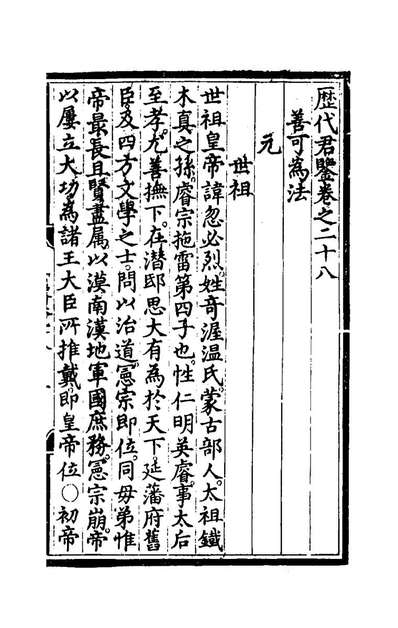 歴代君鑒卷之二十八
善可為法
元
世祖
世祖皇帝諱忽必烈姓奇渥温氏蒙古部人太祖鐵
木真之孫睿宗拖雷第四子也性仁明英睿事太后
至孝尤善撫下在潛邸思大有為於天下延藩府舊
臣及四方文學之士問以治道憲宗即位同母弟惟
帝最長且賢盡屬以漠南漢地軍國庶務憲宗崩帝
以屢立大功為諸王大臣所推戴即皇帝位○初帝